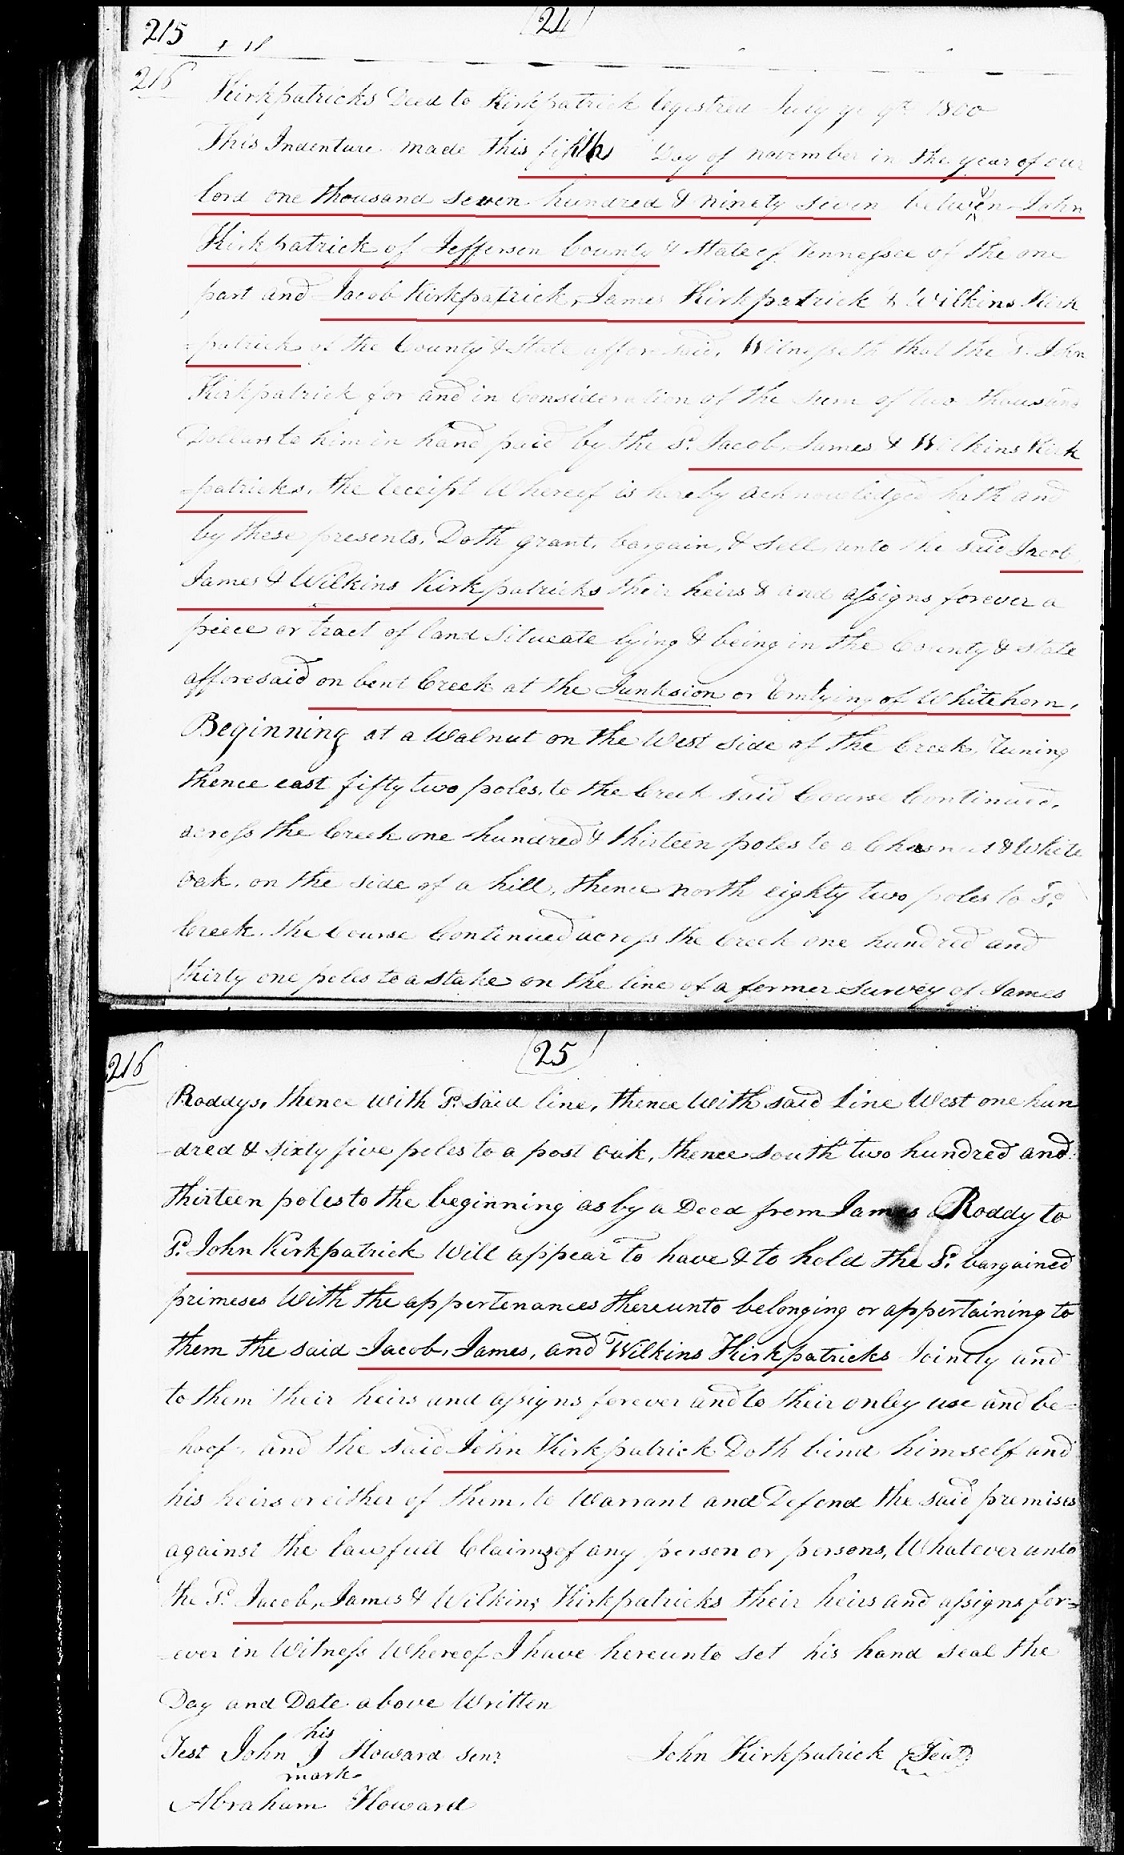 215
(24)
216
Kirkpatricks Deed to Kirkpatrick Registred July ye 9th 1800
This Indenture made this fifth Day of november in the year of our
lord one thousand seven hundred & ninety seven between John
Kirkpatrick of Jefferson County & State of Tennessee of the one
part and Jacob Kirkpatrick, James Kirkpatrick & Wilkins Kirk
patrick of the County & State afforesaid, Witnesseth that the sd. John
Kirkpatrick for and in Consideration of the sum of two thousand
Dollars to him in hand paid by the sd. Jacob James & Wilkins Kirk
patricks, the Receipt Whereof is hereby acknowledged hath and
by these presents, Doth grant, bargain, & sell unto the said Jacob
James & Wilkins Kirkpatricks their heirs & and assigns forever a
piece or tract of land Situeate lying & being in the County & State
afforesaid on bent Creek at the Junksion or Emtying of Whitehorn,
Beginning at a Walnut on the West side of the Creek, Runing
thence east fifty two poles, to the Creek said Course Continued,
across the Creek one hundred & thirteen poles to a Chesnut & White
oak, on the side of a hill, thence north eighty two poles to sd.
Creek. the Course Continued across the Creek one hundred and
thirty one poles to a stake on the line of a former Survey of James
216
(25)
Roddys, thence with sd. said line, thence With said line West one hun
dred & sixty five poles to a post oak, thence south two hundred and
thirteen poles to the beginning as by a Deed from James Roddy to
sd. John Kirkpatrick Will appear To have & to hold the sd. bargained
primeses With the appertenances thereunto belonging or appertaining to
them the said Jacob, James, and Wilkins Kirkpatricks Jointly and
to them their heirs and assigns forever and to their onley use and be-
hoof, and the said John Kirkpatrick Doth bind himself and
his heirs or either of them, to Warrant and Defend the said premises
against the lawfull Claims of any person or persons, Whatever unto
the sd. Jacob, James & Wilkins Kirkpatricks their heirs and assigns for=
ever in Witness Whereof I have hereunto set his hand seal the
Day and Date above Written
his
Test John J Howard Senr
John Kirkpatrick (Seal)
mark
Abraham Howard